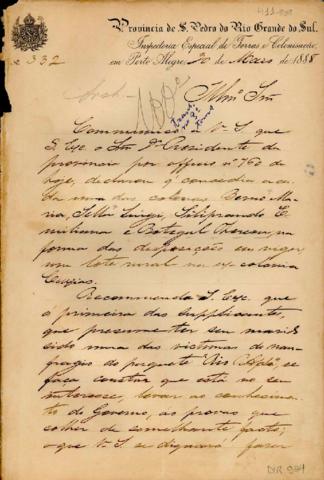 Provincia de S. Pedro do Rio Grande do Sul.
Inspectoria Especial de Terras e Colonisação
em Porto Alegre, 20 de Março de 1888
332
Illmo Snr
Communico a V. S. que
S. Exc. o Snr Dr Presidente da
provincia por officio nº 760 de
hoje, declarou q' concedia a ca-
da uma das colonas,
ria, Luiza,
na
forma das disposições em vigor
um lote rural na ex colonia
Caxias.
Recommenda S. Exc. que
a primeira das supplicantes,
que presume ter seu marido
sido uma das victimas do nau-
fragio do paquete "Rio Apa", se
faça constar que está no seu
interesse, levar ao conhecimen-
to do Governo, as provas que
colher de semelhante facto;
o que V. S. se dignará fazer